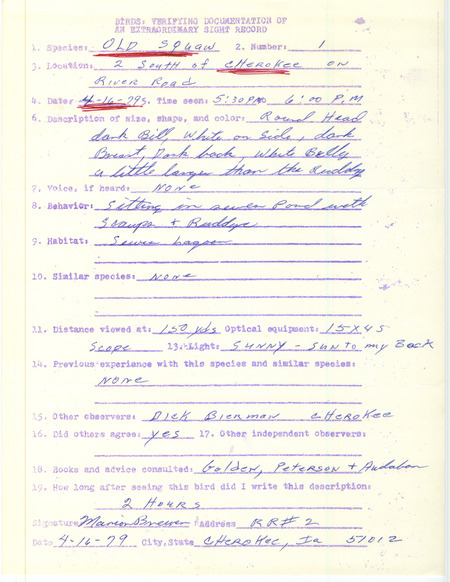 BIRDS: VERIFYING DOCUMENTATION OF
AN EXTRAORDINARY SIGHT RECORD
1. Species: OLD Squaw 2. Number: 1
3. Location: 2 South of CHEROKEE on
River Road
4. Date: 4-16-79 5. Time seen: 5:30 PM 6:00 P.M
6. Description of size, shape, and color: Round Head
dark Bill, White on Side, dark
Breast, Dark back, White Belly
a little larger than the Ruddy
7. Voice, if heard: None
8. Behavior: Sitting in sewer Pond with
Scaups + Ruddys
9. Habitat: Sewer Lagoon
10. Similar species: None
11. Distance viewed at: 150 yds Optical equipment: 15X45
Scope 13. Light: SUNNY - SUN to my Back
14. Previous experience with this species and similar species:
None
15. Other observers: Dick Bierman CHEROKEE
16. Did others agree: yes 17. Other independent observers:
18. Books and advice consulted: Golden, Peterson + Audubon
19. How long after seeing this bird did I write this description:
2 Hours
Signature Marion Brewer Address RR# 2
Date 4-16-79 City, State CHEROKEE, Ia 51012